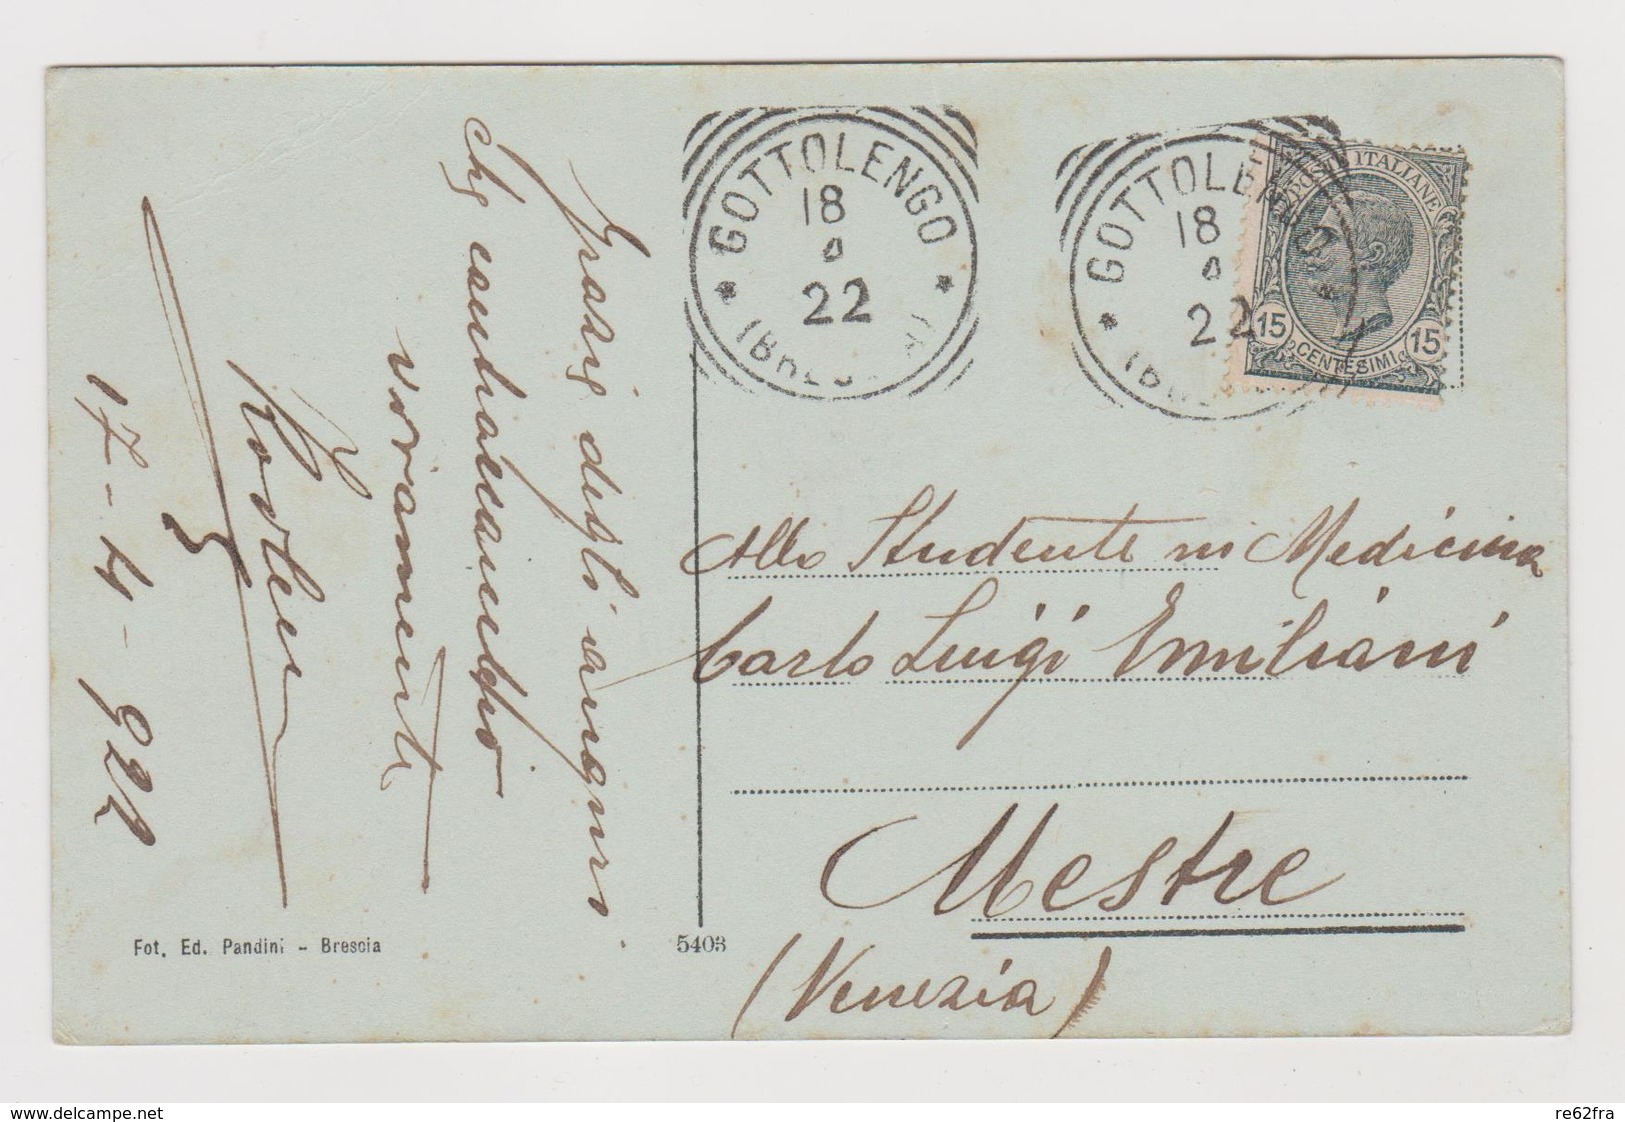 GOTTOLENGO
18
4
22
GOTTOLENGO
18
4
22
POSTE ITALIANE
15 15
CENTESIMI
Grazie degli auguri
che contraccambio
vivamente
17-4-922
Allo Studente in Medicina
Carlo Luigi Emiliani
Mestre
(Venezia)
Fot. Ed. Pandini - Brescia
5403
www.delcampe.net
re62fra